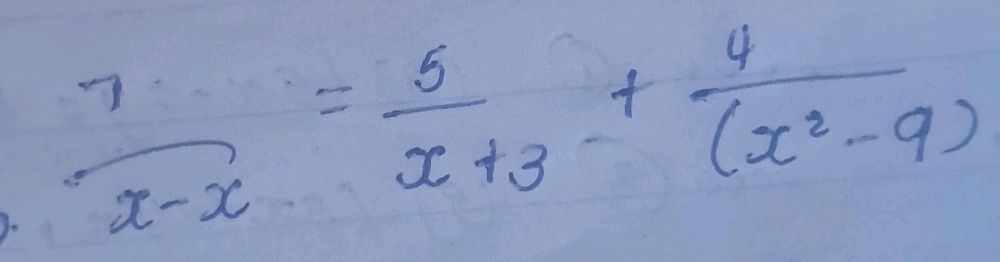 7/(x-x) = 5/(x+3) + 4/(x²-9)